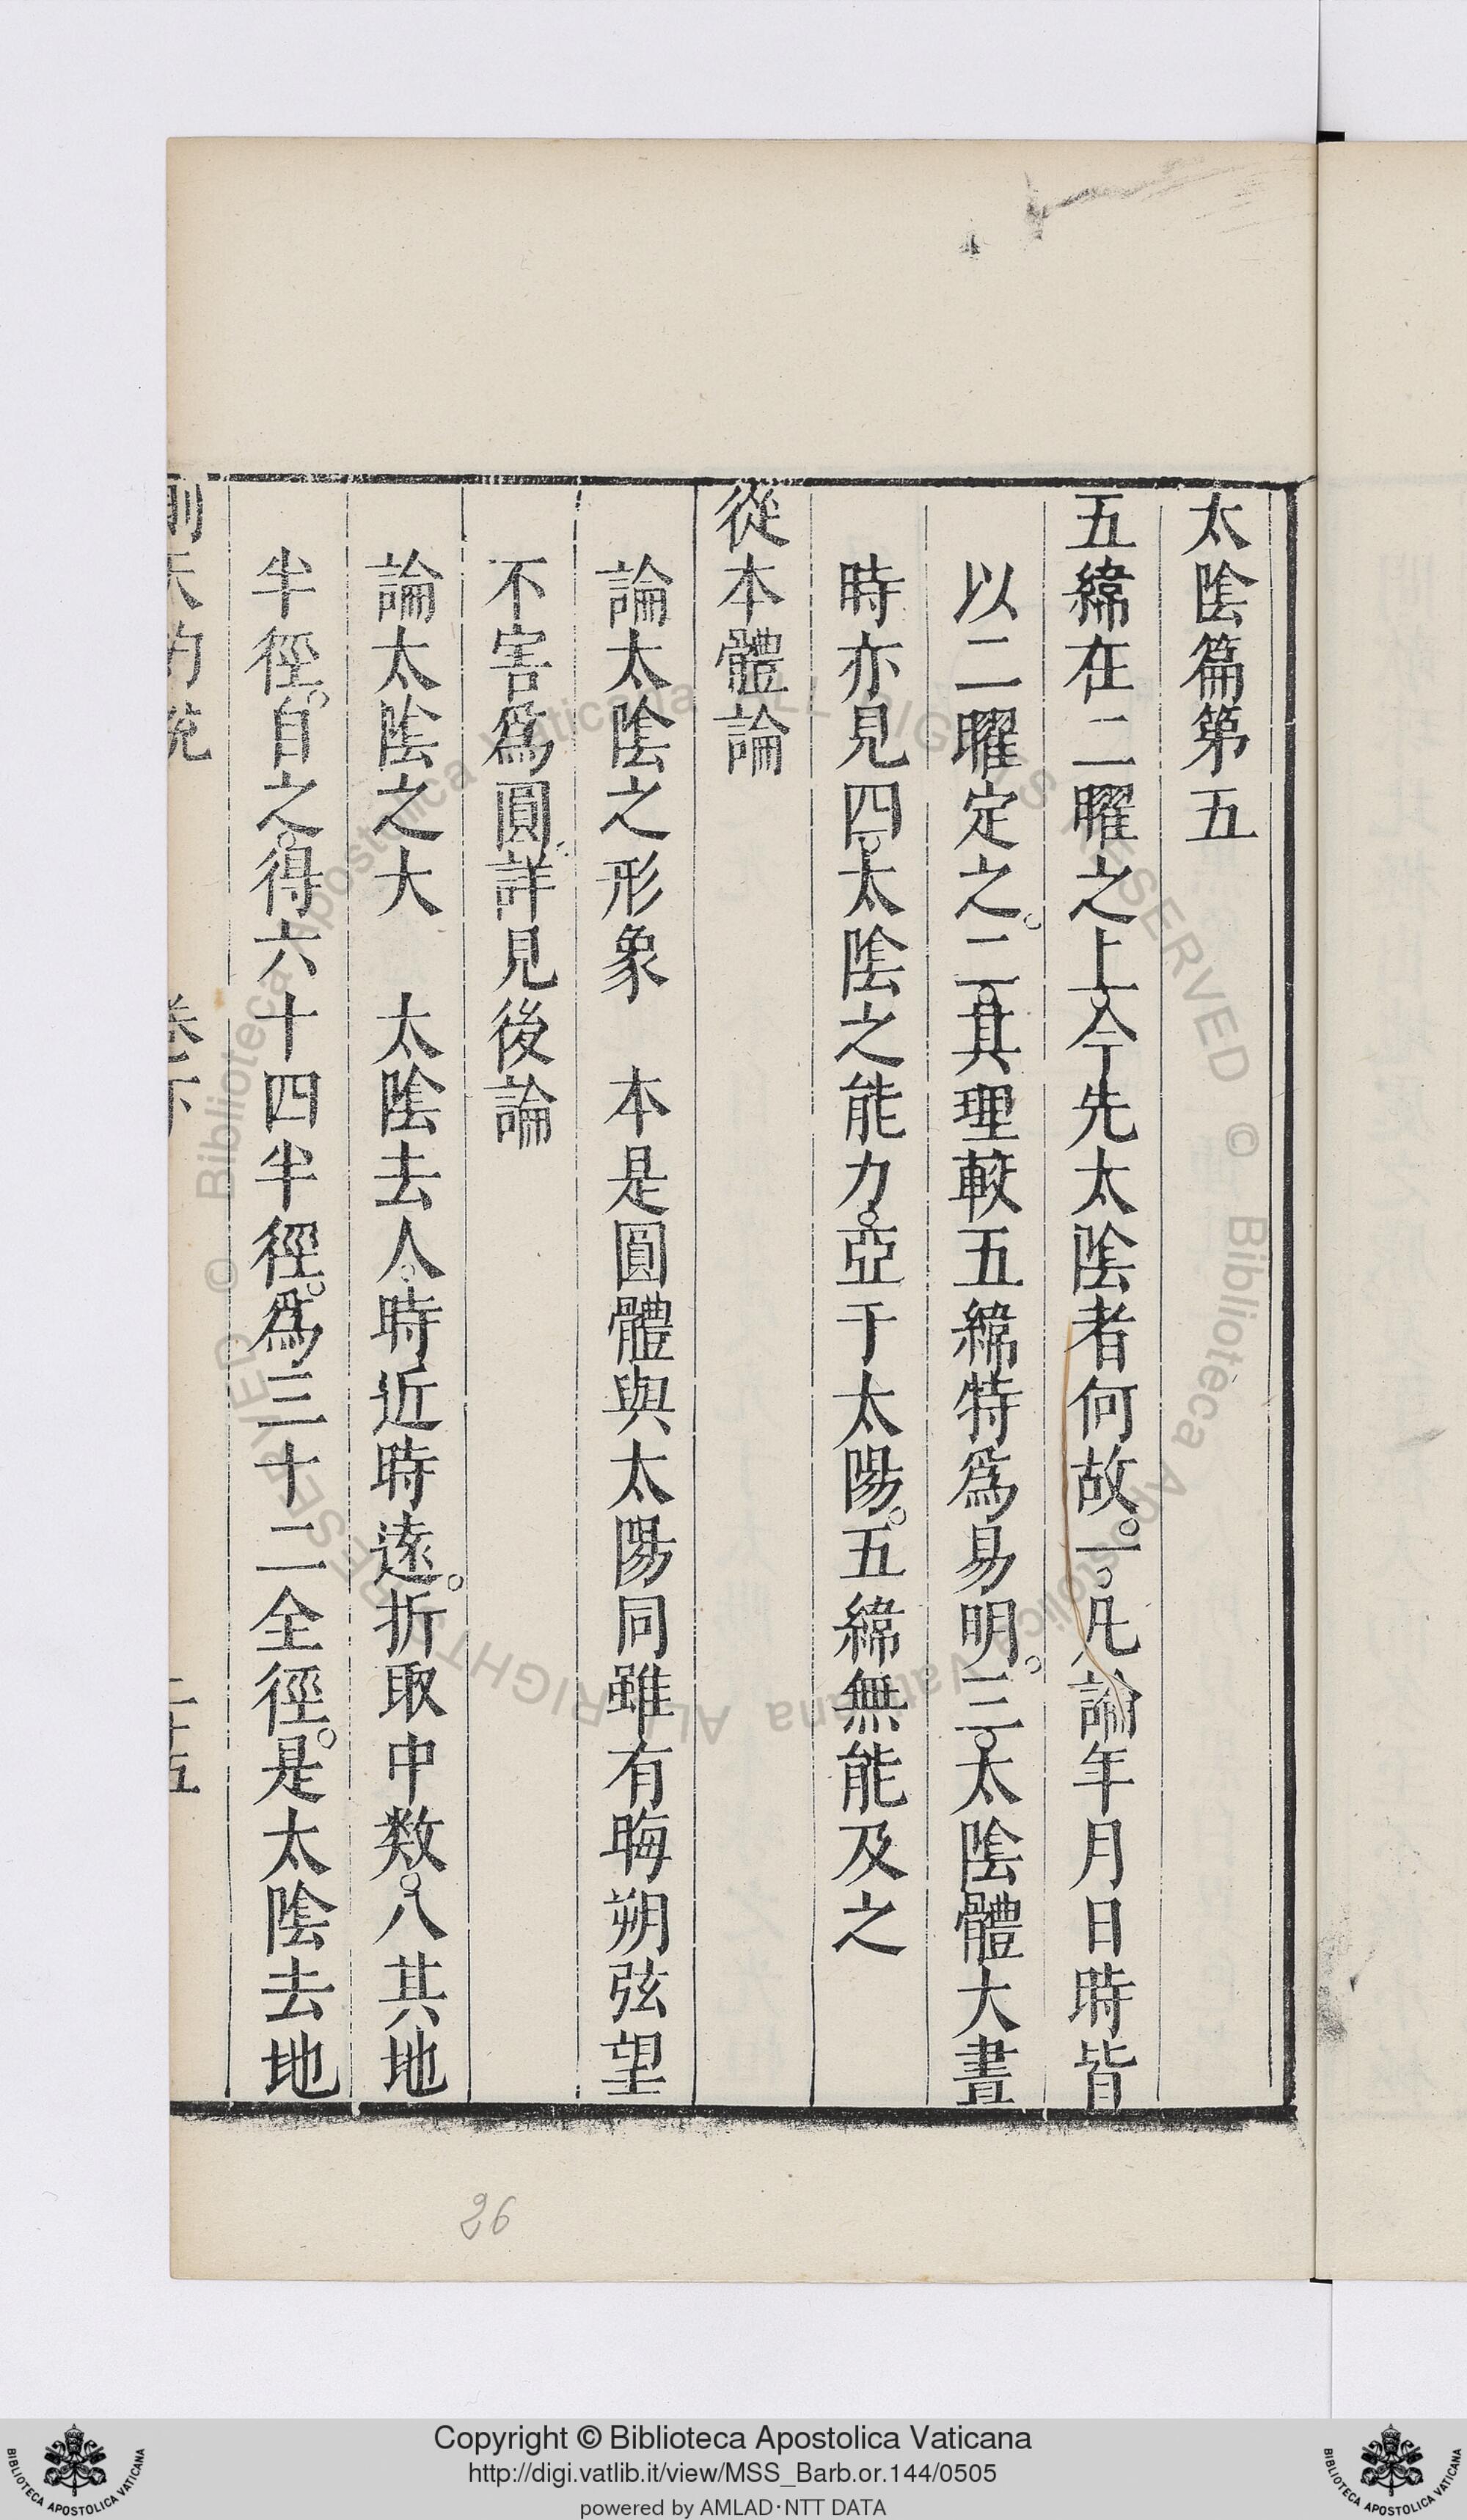 太陰篇第五
五緯在二曜之上今先太陰者何故。一凡論年月日時皆
以二曜定之。二其理較五緯特爲易明。三太陰體大晝
時亦見四。太陰之能力。亞于太陽。五緯無能及之
從本體論
論太陰之形象 本是圓體與太陽同雖有晦朔弦望
不害爲圓。詳見後論
論太陰之大 太陰去人。時近時遠。折取中数。八其地
半徑。自之。得六十四半徑。爲三十二全徑。是太陰去地
測天約說 卷下 二十五
26
Copyright © Biblioteca Apostolica Vaticana
http://digi.vatlib.it/view/MSS_Barb.or.144/0505
powered by AMLAD·NTT DATA
BIBLIOTECA APOSTOLICA VATICANA
BIBLIOTECA APOSTOLICA VATICANA
© Biblioteca Apostolica Vaticana ALL RIGHTS RESERVED © Biblioteca Apostolica Vaticana ALL RIGHTS RESERVED